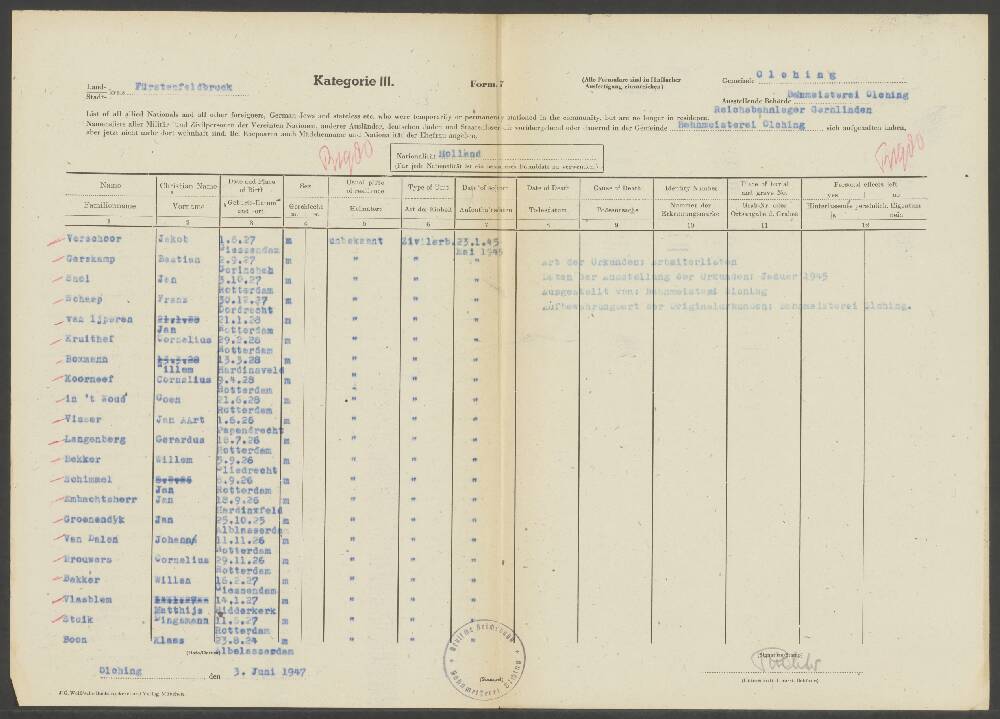 Land-
Stadt-
kreis Fürstenfeldbruck
Kategorie III.
Form. 7
(Alle Formulare sind in 4facher
Ausfertigung einzureichen)
Gemeinde Olching
Ausstellende Behörde Bahnmeisterei Olching
Reichsbahnlager Gernlinden
List of all allied Nationals and all other foreigners, German Jews and stateless etc. who were temporarily or permanently stationed in the community, but are no longer in residence.
Namensliste aller Militär- und Zivilpersonen der Vereinten Nationen, anderer Ausländer, deutschen Juden und Staatenlosen die vorübergehend oder dauernd in der Gemeinde Bahnmeisterei Olching sich aufgehalten haben,
aber jetzt nicht mehr dort wohnhaft sind. Bei Ehepaaren auch Mädchenname und Nationalität der Ehefrau angeben.
Nationalität Holland
(Für jede Nationalität ist ein besonderes Formblatt zu verwenden)
Name Christian Name Date and Place of Birth Sex Usual place of residence Type of Unit Date of sojourn Date of Death Cause of Death Identity Number Place of burial and grave No. Personal effects left yes no
Familienname Vorname Geburts-Datum und -ort Geschlecht Heimatort Art der Einheit Aufenthaltsdaten Todesdatum Todesursache Nummer der Erkennungsmarke Grab-Nr. oder Ortsangabe d. Grabes Hinterlassene persönlich. Eigentum ja nein
1 2 3 4 5 6 7 8 9 10 11 12
Verschoor Jakob 1.6.27 m unbekannt Zivilarb. 23.1.45
Giessendam Mai 1945
Gerskamp Bastian 2.9.27 m " " "
Gorinchem
Snel Jan 3.10.27 m " " "
Rotterdam
Scheep Franz 30.12.27 m " " "
Dordrecht
van Ijperen 21.1.28 m " " "
Jan Rotterdam
Kruithof Cornelius 29.2.28 m " " "
Rotterdam
Boxmann 13.3.28 m " " "
Willem Hardinxveld
Koorneef Cornelius 9.4.28 m " " "
Rotterdam
in 't Woud Coen 21.6.28 m " " "
Rotterdam
Visser Jan Aart 1.6.26 m " " "
Papendrecht
Langenberg Gerardus 18.7.26 m " " "
Rotterdam
Bekker Willem 5.9.26 m " " "
Sliedrecht
Schimmel 6.9.26 m " " "
Jan Rotterdam
Ambachtsherr Jan 18.9.26 m " " "
Hardinxfeld
Groenendyk Jan 25.10.25 m " " "
Alblasserdam
Van Dalen Johann 11.11.26 m " " "
Rotterdam
Brouwers Cornelius 29.11.26 m " " "
Rotterdam
Bakker Willem 16.2.27 m " " "
Giessendam
Vlasblem 14.1.27 m " " "
Matthijs Ridderkerk
Stolk Pingsmann 11.5.27 m " " "
Rotterdam
Boon Klaas 23.8.24 m " " "
Albelasserdam
Art der Urkunden: Arbeiterlisten
Daten der Ausstellung der Urkunden: Januar 1945
Ausgestellt von: Bahnmeisterei Olching
Aufbewahrungsort der Originalurkunden: Bahnmeisterei Olching.
(Date/Datum)
Olching den 3. Juni 1947
(Stempel)
Deutsche Reichsbahn
Bahnmeisterei Olching
(Signature/Stamp)